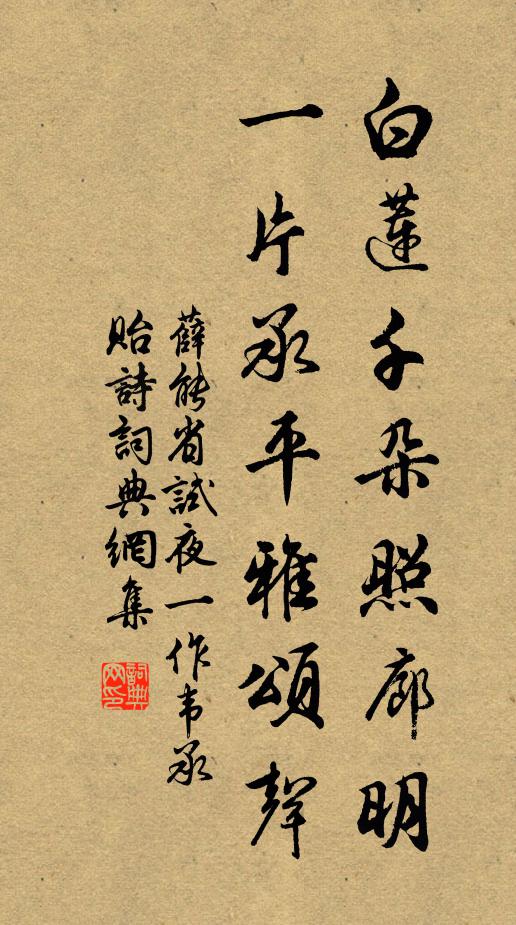 白蓮千朵照廊明
一片承平雅頌聲
薛能省試夜一作韦承
貽詩詞典網集
詞典网印